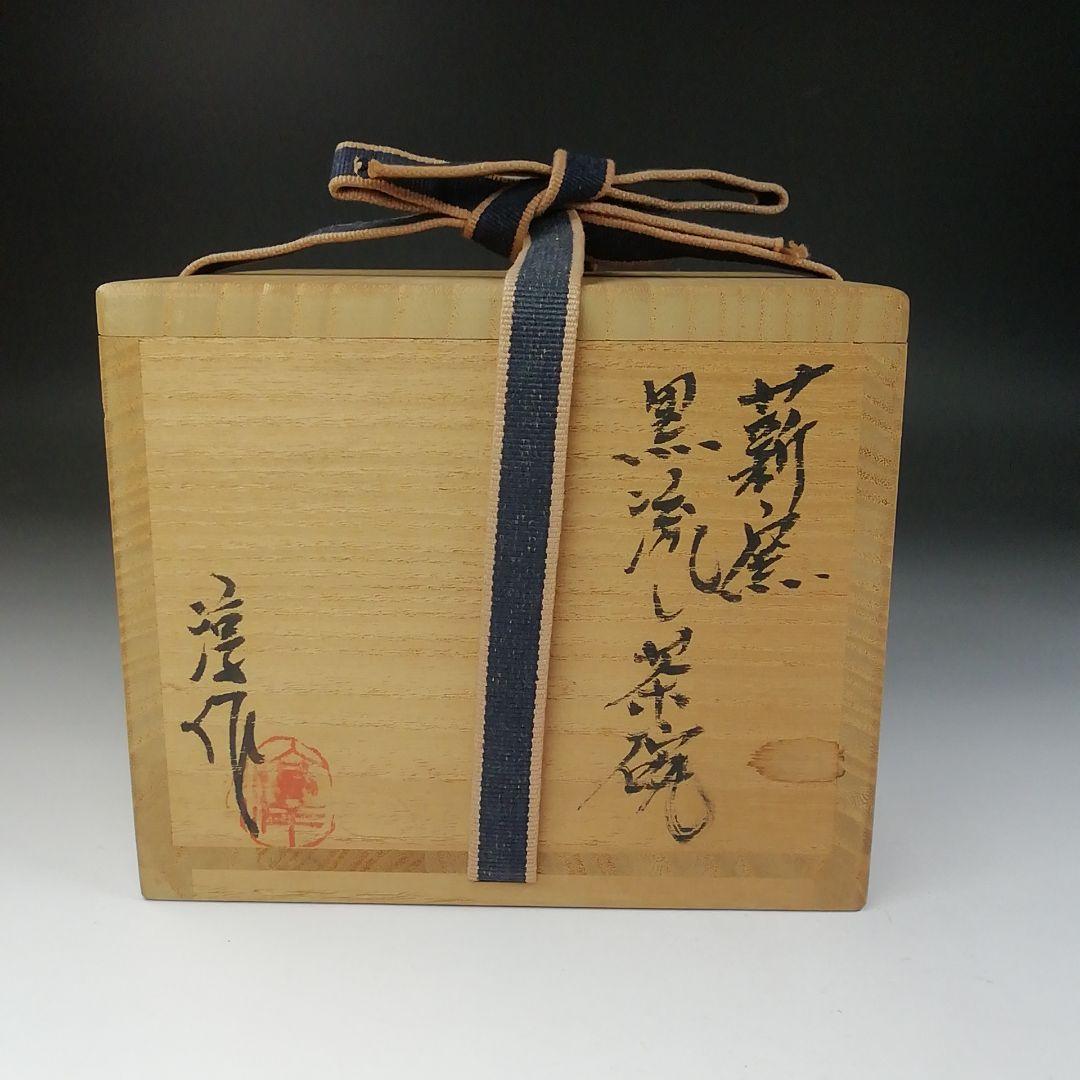 薪窯
黒流し茶碗
淳作